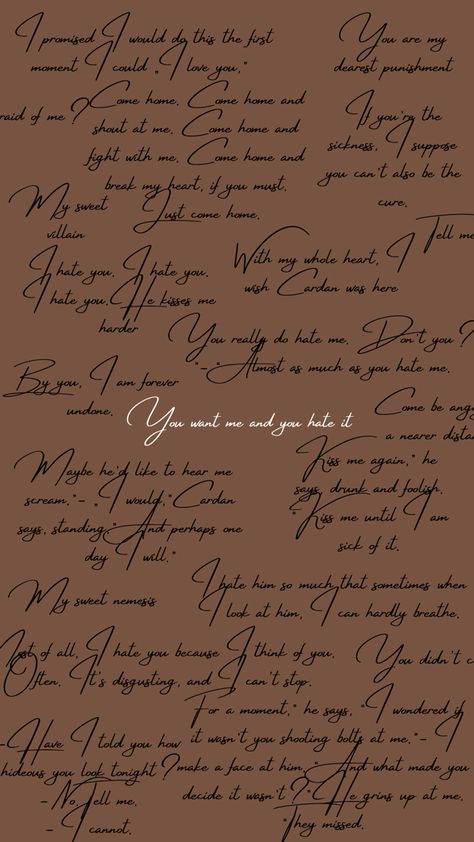 I promised I would do this the first
moment I could „ I love you,"
You are my
dearest punishment
raid of me?
Come home. Come home and
shout at me. Come home and
fight with me. Come home and
break my heart, if you must.
Just come home.
If you're the
sickness, I suppose
you can't also be the
cure.
My sweet
villain
Tell me
I hate you. I hate you.
I hate you. He kisses me
harder
With my whole heart, I
wish Cardan was here
You really do hate me. Don't you?
"-"Almost as much as you hate me.
By you, I am forever
undone.
You want me and you hate it
Come be ang
a nearer distan
Maybe he'd like to hear me
scream."- „I would,"Cardan
says, standing."And perhaps one
day I will."
Kiss me again," he
says, drunk and foolish.
"Kiss me until I am
sick of it.
My sweet nemesis
I hate him so much that sometimes when
I look at him, I can hardly breathe.
ost of all, I hate you because I think of you.
Often. It's disgusting, and I can't stop.
You didn't c
For a moment," he says, "I wondered if
it wasn't you shooting bolts at me."- I
make a face at him, "And what made you
decide it wasn't?"He grins up at me,
"They missed.
-Have I told you how
hideous you look tonight?
- No. Tell me.
- I cannot.